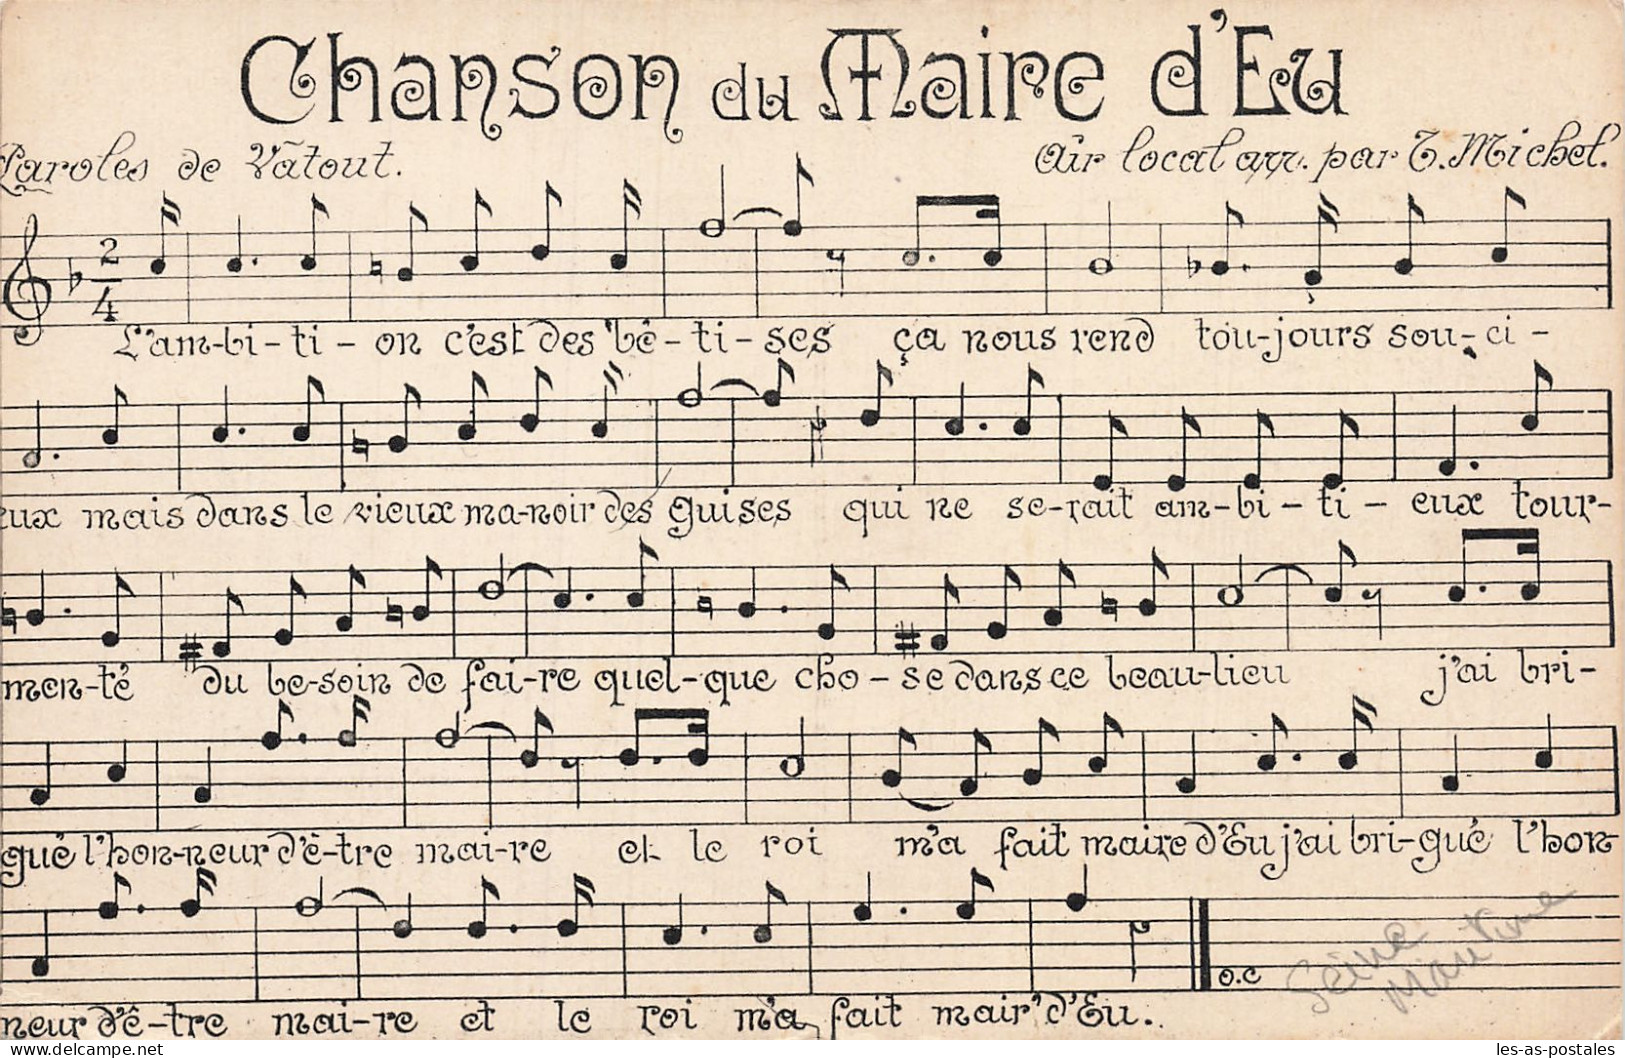 Chanson du Maire d'Eu
Paroles de Vatout.
Air local arr. par T. Michel.
2
4
L'am-bi-ti-on c'est des bê-ti-ses ça nous rend tou-jours sou-ci-
eux mais dans le vieux ma-noir des guises qui ne se-rait am-bi-ti-eux tour-
men-té du be-soin de fai-re quel-que cho-se dans ce beau-lieu j'ai bri-
gué l'hon-neur d'ê-tre mai-re et le roi m'a fait maire d'Eu j'ai bri-gué l'hon-
neur d'ê-tre mai-re et le roi m'a fait mair' d'Eu.
D.C
Seine
Maritime
les-as-postales